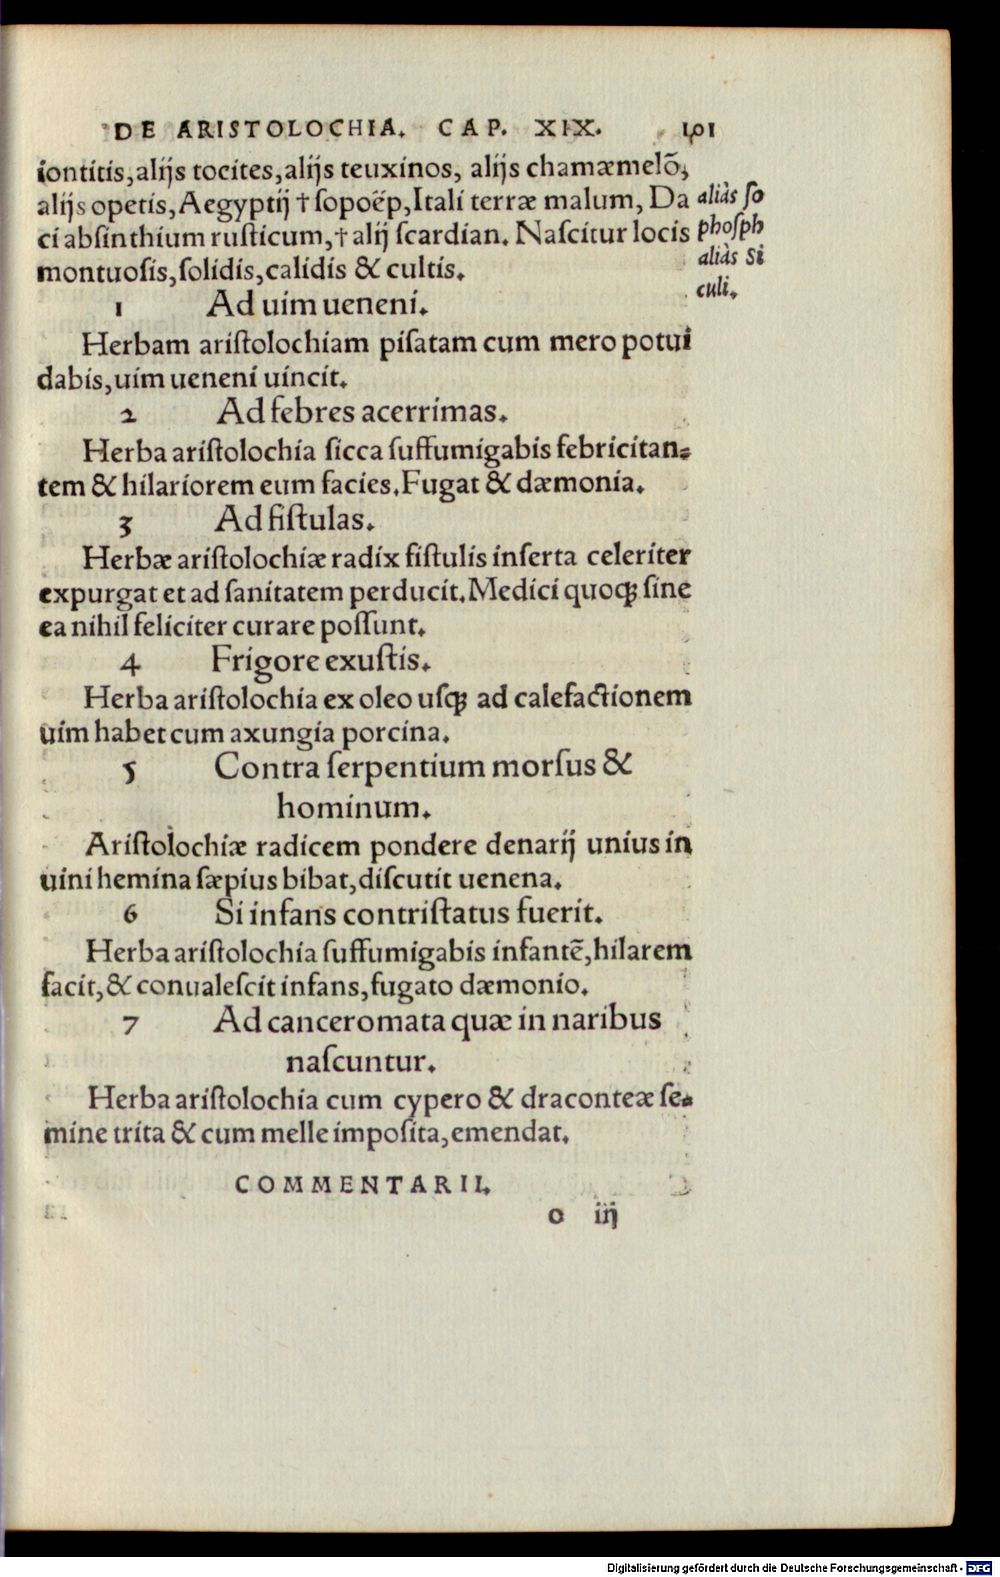 DE ARISTOLOCHIA. CAP. XIX. 101
iontitis,alijs tocites,alijs teuxinos, alijs chamæmelõ,
alijs opetis,Aegyptij † ſopoëp,Itali terræ malum, Da
ci abſinthium ruſticum,† alij ſcardian. Naſcitur locis
montuoſis,ſolidis,calidis & cultis.
aliàs ſo
phoſph
aliàs Si
culi.
1 Ad uim ueneni.
Herbam ariſtolochiam piſatam cum mero potui
dabis,uim ueneni uincit.
2 Ad febres acerrimas.
Herba ariſtolochia ſicca ſuffumigabis febricitan⸗
tem & hilariorem eum facies.Fugat & dæmonia.
3 Ad fiſtulas.
Herbæ ariſtolochiæ radix fiſtulis inſerta celeriter
expurgat et ad ſanitatem perducit.Medici quoqꝫ ſine
ea nihil feliciter curare poſſunt.
4 Frigore exuſtis.
Herba ariſtolochia ex oleo uſqꝫ ad calefactionem
uim habet cum axungia porcina.
5 Contra ſerpentium morſus &
hominum.
Ariſtolochiæ radicem pondere denarij unius in
uini hemina ſæpius bibat,diſcutit uenena.
6 Si infans contriſtatus fuerit.
Herba ariſtolochia ſuffumigabis infantẽ,hilarem
facit,& conualeſcit infans,fugato dæmonio.
7 Ad canceromata quæ in naribus
naſcuntur.
Herba ariſtolochia cum cypero & draconteæ ſe⸗
mine trita & cum melle impoſita,emendat.
COMMENTARII.
o iij
Digitalisierung gefördert durch die Deutsche Forschungsgemeinschaft - DFG